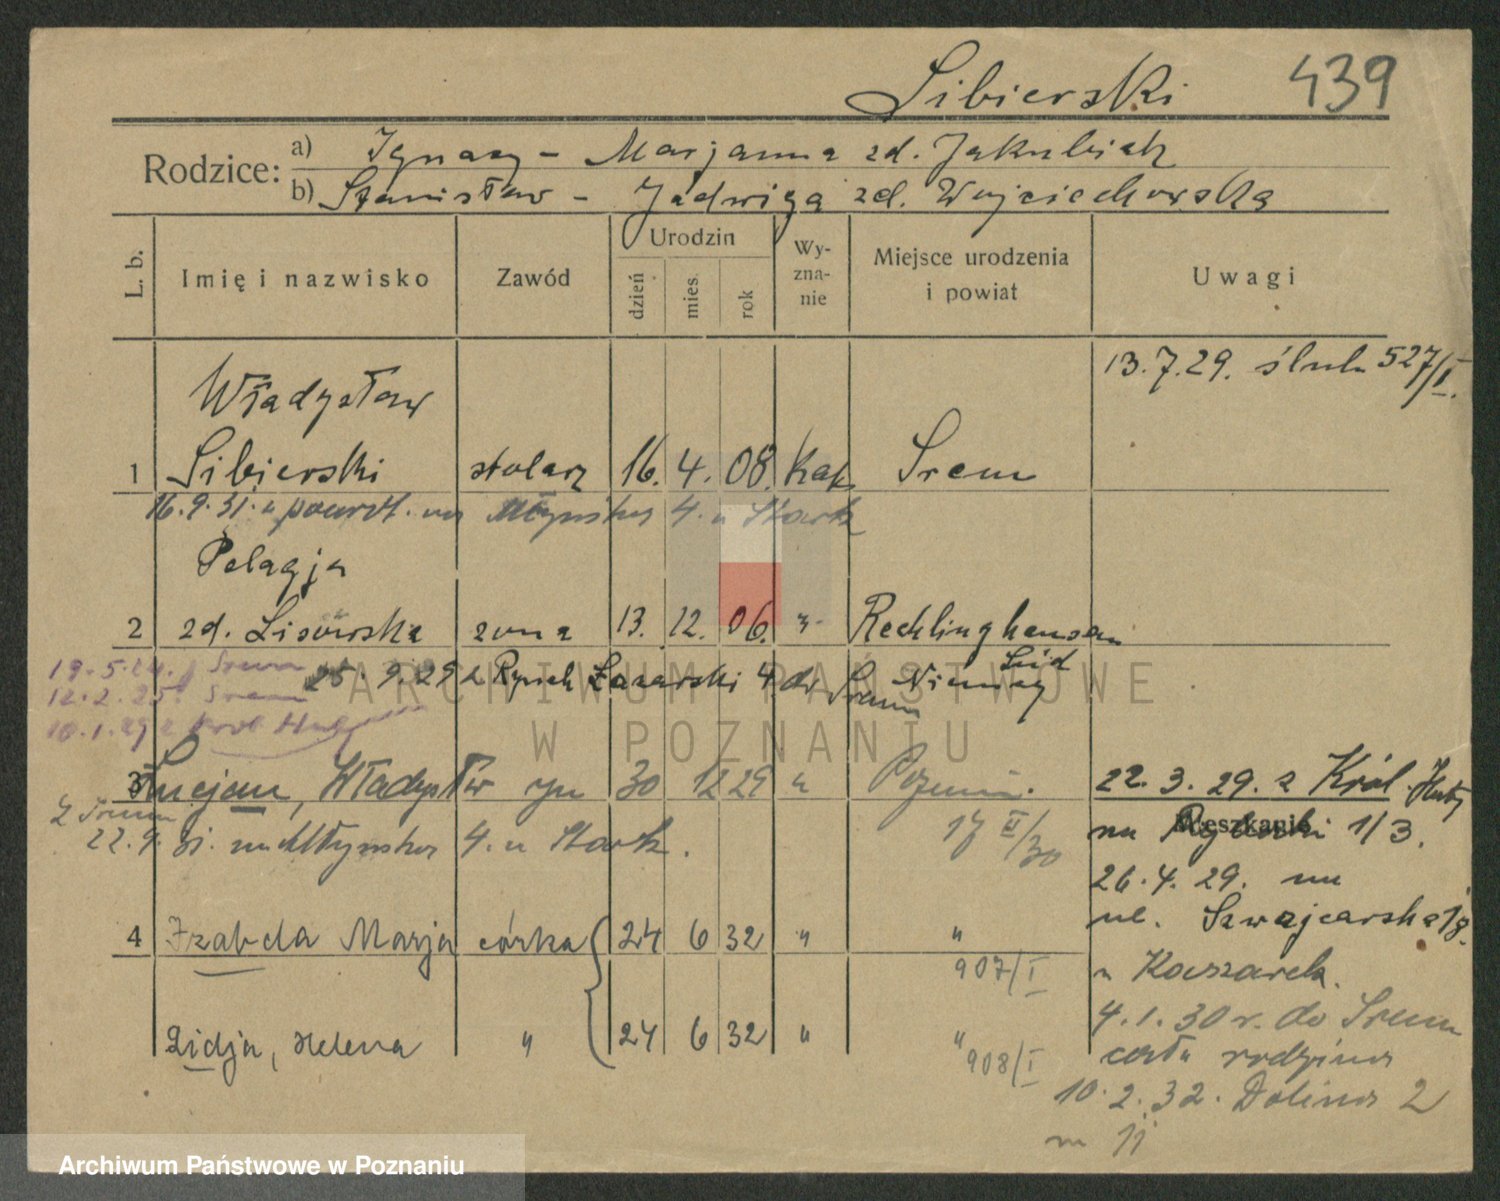 Sibierski 439
Rodzice: a) Ignacy - Marjanna zd. Jakubiak
b) Stanisław - Jadwiga zd. Wojciechowska
L. b. Imię i nazwisko Zawód Urodzin dzień mies. rok Wy-zna-nie Miejsce urodzenia i powiat Uwagi
13.7.29. ślub 527/I.
Władysław
1 Sibierski stolarz 16. 4. 08. kat. Śrem
16.9.31. u powrót. na Młyńska 4. u Stark
Pelagja
2 zd. Lisowska żona 13. 12. 06. " Recklinghausen
19.5.24. Śrem 25.9.29 z Rynek Łazarski 4 do Śrem Niemcy
12.2.25. Śrem
10.1.29 z Król Huty
3 Lucjan, Władysław syn 30 12 29 " Poznań.
22.3.29. z Król. Huty
Z Śrem
17 II/30
22.9.31. na Młyńska 4. u Stark.
Mieszkanie
na 1/3.
26.4.29. na
ul. Szwajcarska 18.
4 Izabela Marja córka 24 6 32 " "
907/I
u Kaszarek.
4.1.30 r. do Śrem
Lidja, Helena " 24 6 32 " "
908/I
cała rodzina
10.2.32. Dolina 2
m 11
ARCHIWUM PAŃSTWOWE
W POZNANIU
Archiwum Państwowe w Poznaniu